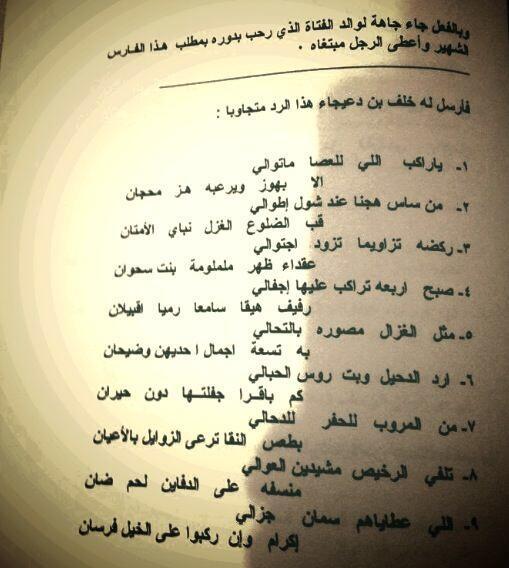 وبالفعل جاء جاهة لوالد الفتاة الذي رحب بدوره بمطلب هذا الفارس
الشهير وأعطى الرجل مبتغاه .
فأرسل له خلف بن دعيجاء هذا الرد متجاوبا :
١- ياراكب اللي للعصا ماتوالي
الا بهوز ويرعبه هز محجان
٢- من ساس هجنا عند شول إطوالي
قب الضلوع الغزل نباي الأمتان
٣- ركضه تزاويما تزود اجتوالي
عقداء ظهر ململومة بنت سحوان
٤- صبح اربعه تراكب عليها إجفالي
رفيف هيقا سامعا رميا اقبيلان
٥- مثل الغزال مصوره بالتحالي
به تسعة اجمال احديهن وضيحان
٦- ارد الدحيل وبت روس الحبالي
كم باقرا جفلتها دون حيران
٧- من المروب للحفر للدحالي
بطعص النقا ترعى الزوايل بالأعيان
٨- تلفي الرخيص مشيدين العوالي
منسفه على الدفاين لحم ضان
٩- اللي عطاياهم سمان جزالي
إكرام وإن ركبوا على الخيل فرسان